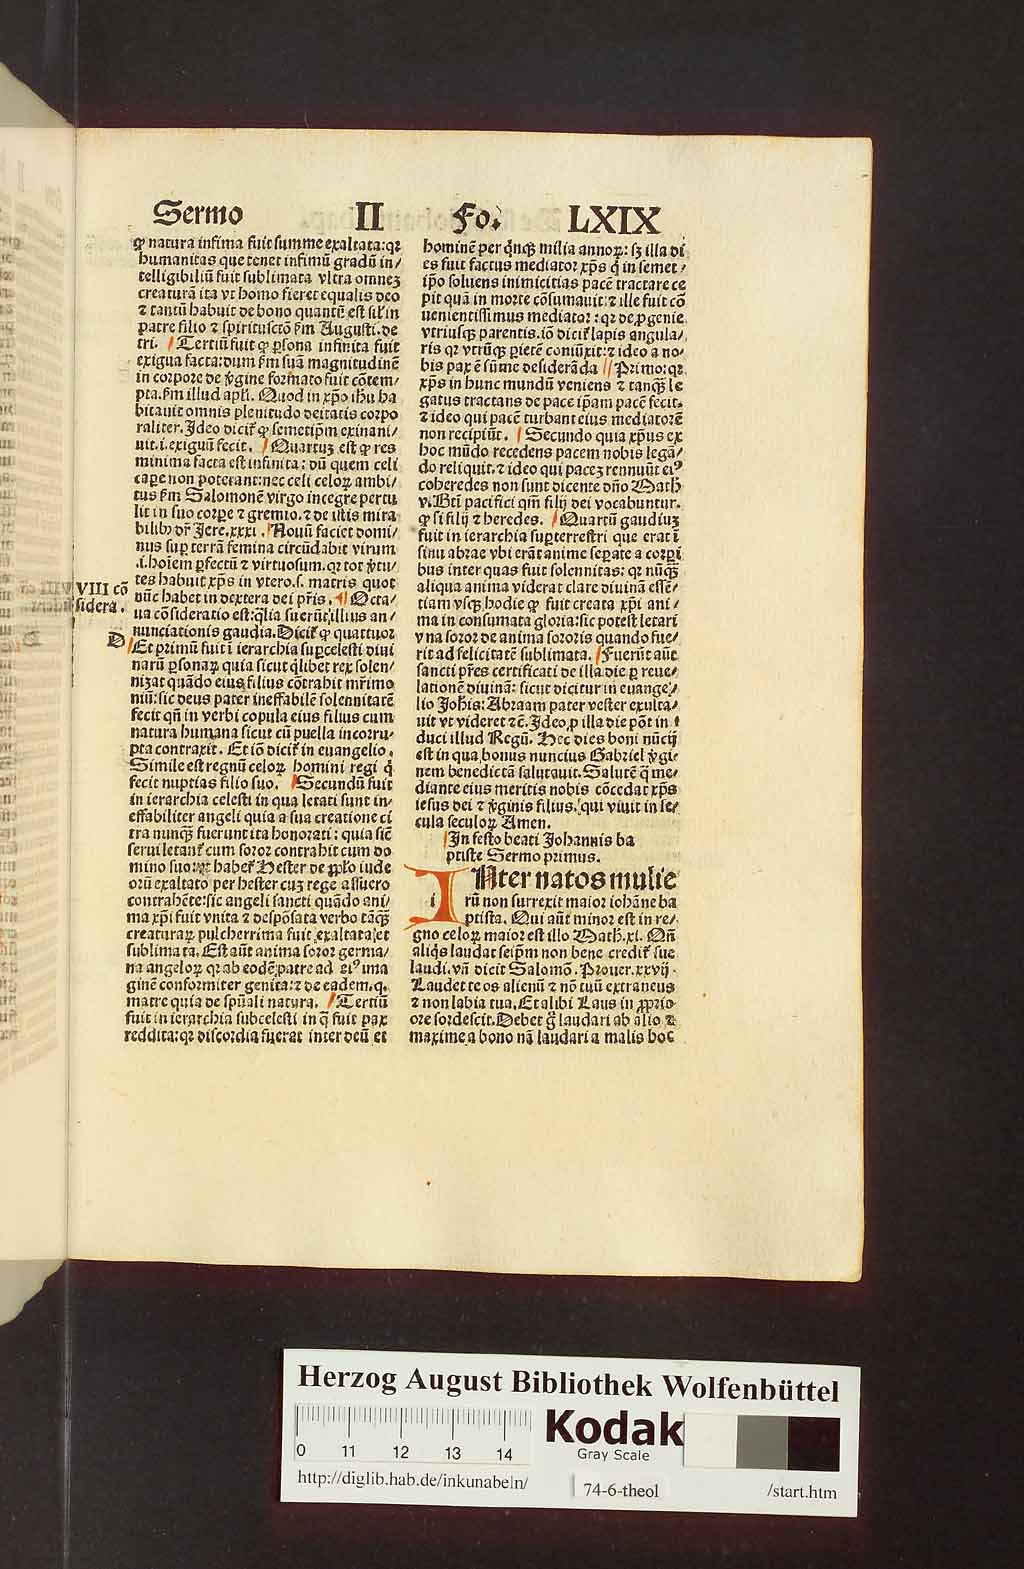 Sermo II Fo. LXIX
ꝙ natura infima fuit summe exaltata: qꝛ
humanitas que tenet infimū gradū in/
telligibiliū fuit sublimata vltra omnez
creaturā ita vt homo fieret equalis deo
⁊ tantū habuit de bono quantū est sil'in
patre filio ⁊ spiritusctō ẜm Augusti. de
tri. Tertiū fuit ꝙ ꝑsona infinita fuit
exigua facta: dum ẜm suā magnitudinē
in corpore de v̓gine formato fuit cōtem/
pta. ẜm illud apl'i. Quod in xp̄o ih̄u ha
bitauit omnis plenitudo deitatis corpo
raliter. Ideo dicit̉ ꝙ semetip̄m exinani/
uit. i. exiguū fecit. Quartuz est ꝙ res
minima facta est infinita: dū quem celi
capere non poterant: nec celi celoꝝ ambi/
tus ẜm Salomonē virgo integre pertu
lit in suo corꝑe ⁊ gremio. ⁊ de istis mira
bilib⁹ dr̄ Jere. xxxi. Nouū faciet domi/
nus suꝑ terrā femina circūdabit virum
.i. hoīem ꝑfectū ⁊ virtuosum. qꝛ tot v̓tu/
tes habuit xp̄s in vtero. s. matris quot
nūc habet in dextera dei pr̄is. Octa/
ua cōsideratio est: q̄lia fuerūt illius an/
nunciationis gaudia. Dicit̉ ꝙ quattuor
VIII cō
sidera.
D
Et primū fuit ī ierarchia suꝑcelesti diui
narū ꝑsonaꝝ quia sicut q̄libet rex solen/
nizat quādo eius filius cōtrahit mr̄imo
niū: sic deus pater ineffabilē solennitatē
fecit qn̄ in verbi copula eius filius cum
natura humana sicut cū puella incorru/
pta contraxit. Et iō dicit̉ in euangelio.
Simile est regnū celoꝝ homini regi q̇
fecit nuptias filio suo. Secundū fuit
in ierarchia celesti in qua letati sunt in/
effabiliter angeli quia a sua creatione ci
tra nunqꝫ fuerunt ita honorati: quia sic̄
serui letant̉ cum soror contrahit cum do
mino suo: habet̉ Hester de ꝓp̄lo iude
orū exaltato per hester cuz rege assuero
contrahēte: sic angeli sancti quādo ani/
ma xp̄i fuit vnita ⁊ despōsata verbo tāqꝫ
creaturaꝝ pulcherrima fuit exaltata et
sublimata. Est aūt anima soror germa/
na angeloꝝ qꝛ ab eodē patre ad ei⁹ ima
ginē conformiter genita: ⁊ de eadem. q.
matre quia de spūali natura. Tertiū
fuit in ierarchia subcelesti in q̄ fuit pax
reddita: qꝛ discordia fuerat inter deū et
hominē per q̇nqꝫ milia annoꝝ: sꝫ illa di
es fuit factus mediator xp̄s q̇ in semet/
ip̄o soluens inimicitias pacē tractare ce
pit quā in morte cōsumauit: ⁊ ille fuit cō
uenientissimus mediator: qꝛ de ꝓgenie
vtriusqꝫ parentis. iō dicit̉ lapis angula/
ris qꝛ vtrūqꝫ ꝑietē coniūxit: ⁊ ideo a no/
bis pax ē sūme desiderāda Primo: qꝛ
xp̄s in hunc mundū veniens ⁊ tanqꝫ le
gatus tractans de pace ip̄am pacē fecit.
⁊ ideo qui pacē turbant eius mediatorē
non recipiūt. Secundo quia xp̄us ex
hoc mūdo recedens pacem nobis lega/
do reliquit. ⁊ ideo qui pacez rennuūt ei⁹
coheredes non sunt dicente dn̄o Math
v. Bt̄i pacifici qm̄ filij dei vocabuntur.
ꝙ si filij ⁊ heredes. Quartū gaudiuz
fuit in ierarchia suꝑterrestri que erat ī
sinu abrae vbi erāt anime seꝑate a corꝑi
bus inter quas fuit solennitas: qꝛ nūqꝫ
aliqua anima viderat clare diuinā essē/
tiam vsqꝫ hodie ꝙ fuit creata xp̄i ani/
ma in consumata gloria: sic potest letari
vna soror de anima sororis quando fue/
rit ad felicitatē sublimata. Fuerūt aūt
sancti pr̄es certificati de illa die ꝑ reue/
lationē diuinā: sicut dicitur in euange/
lio Joh̄is: Abraam pater vester exulta/
uit vt videret ⁊c̄. Ideo ꝓ illa die pōt in
duci illud Regū. Hec dies boni nūcij
est in qua bonus nuncius Gabriel v̓gi
nem benedictā salutauit. Salutē q̄ me/
diante eius meritis nobis cōcedat xp̄s
iesus dei ⁊ v̓ginis filius. qui viuit in se/
cula seculoꝝ Amen.
In festo beati Johannis ba
ptiste Sermo primus.
INter natos mulie
rū non surrexit maior iohāne ba
ptista. Qui aūt minor est in re/
gno celoꝝ maior est illo Math. xi. Qn̄
aliq̇s laudat seip̄m non bene credit̉ sue
laudi. vn̄ dicit Salomō. Prouer. xxvij.
Laudet te os alienū ⁊ nō tuū extraneus
⁊ non labia tua. Et alibi Laus in ꝓprio
ore sordescit. Debet g̊ laudari ab alio ⁊
maxime a bono nā laudari a malis hoc
Herzog August Bibliothek Wolfenbüttel
0 11 12 13 14
Kodak
Gray Scale
http://diglib.hab.de/inkunabeln/
74-6-theol
/start.htm